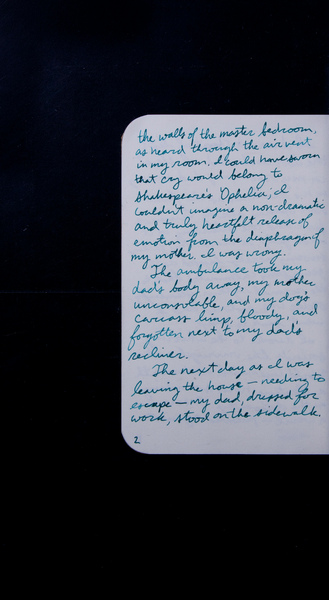 the walls of the master bedroom,
as heard through the air vent
in my room. I could have sworn
that cry would belong to
Shakespeare's 'Ophelia'; I
couldn't imagine a non-dramatic
and truly heartfelt release of
emotion from the diaphragm of
my mother. I was wrong.
The ambulance took my
dad's body away, my mother
unconsolable, and my dog's
carcass limp, bloody, and
forgotten next to my dad's
recliner.
The next day as I was
leaving the house — needing to
escape — my dad, dressed for
work, stood on the sidewalk.
2